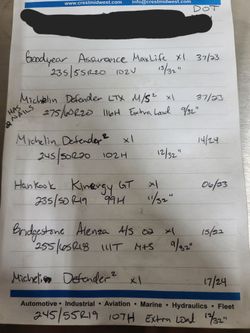 www.crestmidwest.com info@crestmidwest.com
DOT
Goodyear Assurance MaxLife x1 37/23
235/55R20 102V 10/32"
Michelin Defender LTX M/S² x1 37/23
HAS
2 NAILS
275/60R20 116H Extra Load 9/32"
Michelin Defender² x1 14/24
245/50R20 102H 12/32"
Hankook Kinergy GT x1 06/23
235/50R19 99H 11/32"
Bridgestone Alenza A/S 02 x1 15/22
255/65R18 111T M+S 9/32"
Michelin Defender² x1 17/24
Automotive • Industrial • Aviation • Marine • Hydraulics • Fleet
245/55R19 107H Extra Load 12/32"